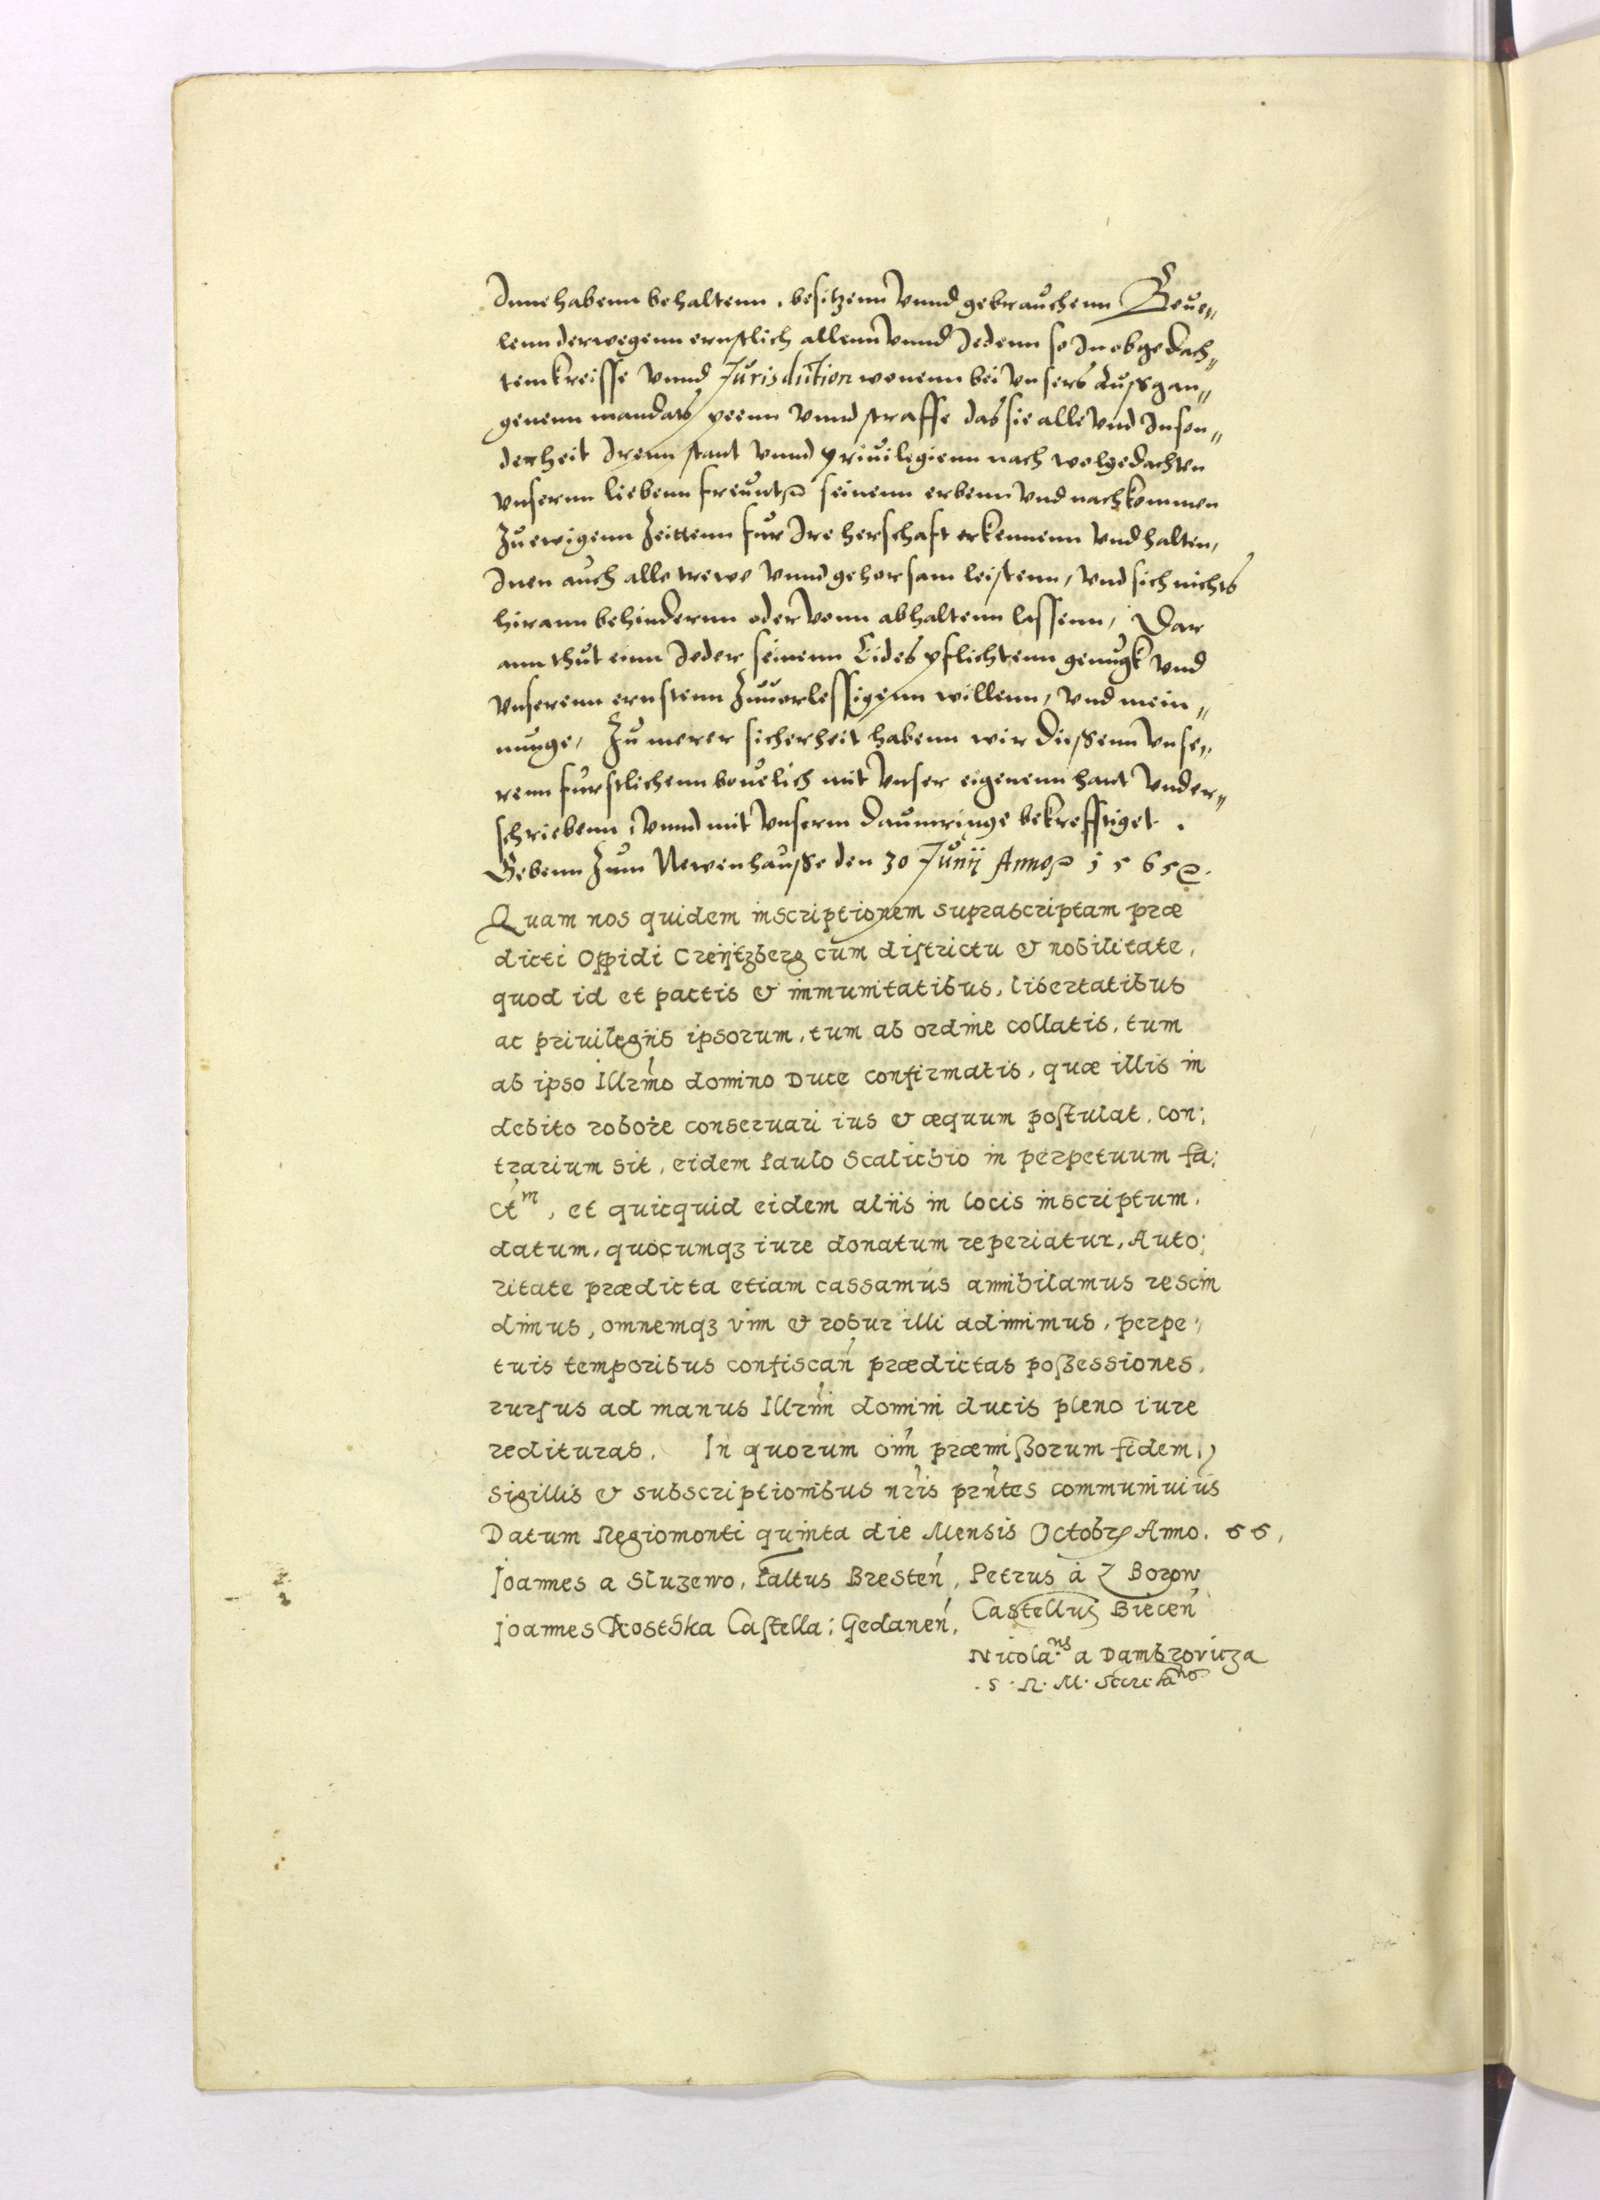 Innehabenn behaltenn, besitzenn vnnd gebrauchenn Beue„
lenn derwegenn ernstlich allenn vnnd Jedenn so In obgedach„
tem kreisse vnnd Jurisdution wonenn bei vnsers Aussgan„
genenn mandats peenn vnnd straffe das sie alle vnd Inson„
derheit Irenn stant vnnd priuilegienn nach wolgedachten
vnsernn liebenn freunt seinenn erbenn vnd nachkommen
Zu ewigenn Zeittenn fur Ire herschaft erkennenn vnd halten,
Inen auch alle trewe vnnd gehorsam leistenn, vnd sich nichts
hirann behindernn oder vonn abhaltenn lassenn, Dar
ann thut einn Jeder seinenn Eides pflichtenn genugk vnd
vnserenn ernstenn Zuuorlessigenn willenn, vnd mein„
nunge, Zu merer sicherheit habenn wir diessenn vnse„
renn furstlichenn beuelich mit vnser eigenenn hant vnder„
schriebenn, vnnd mit vnserm daumringe bekrefftiget.
Gebenn Zum Newenhausse den 30 Junij Anno 1565.
Quam nos quidem inscriptionem suprascriptam præ
dicti Oppidi Creijtzberg cum districtu & nobilitate,
quod id et pactis & immunitatibus, libertatibus
ac priuilegiis ipsorum, tum ab ordine collatis, tum
ab ipso Illrmo domino Duce confirmatis, quæ illis in
debito robore conseruari ius & æquum postulat, con:
trarium sit, eidem Paulo Scalichio in perpetuum fa:
ctm, et quicquid eidem aliis in locis inscriptum,
datum, quocumqꝫ iure donatum reperiatur, Auto:
ritate prædicta etiam cassamus annihilamus rescin
dimus, omnemqꝫ vim & robur illi adimimus, perpe:
tuis temporibus confiscan prædictas poßessiones,
rursus ad manus Illrmi domini ducis pleno iure
redituras. In quorum oim præmißorum fidem,
sigillis & subscriptionibus nris prntes communiuius
Datum Regiomonti quinta die Mensis Octobr Anno. 66,
Joannes a Sluzewo, Paltus Bresten, Petrus à Z Borow
Castellus Biecen
Joannes Kosthka Castella: Gedanen,
Nicolaus a Dambrovicza
. S. R. M. Secretarius